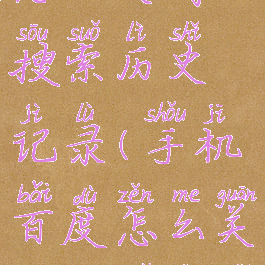 sōu suǒ lì shǐ
搜索历史
jì lù shǒu jī
记录(手机
bǎi dù zěn me guān
百度怎么关